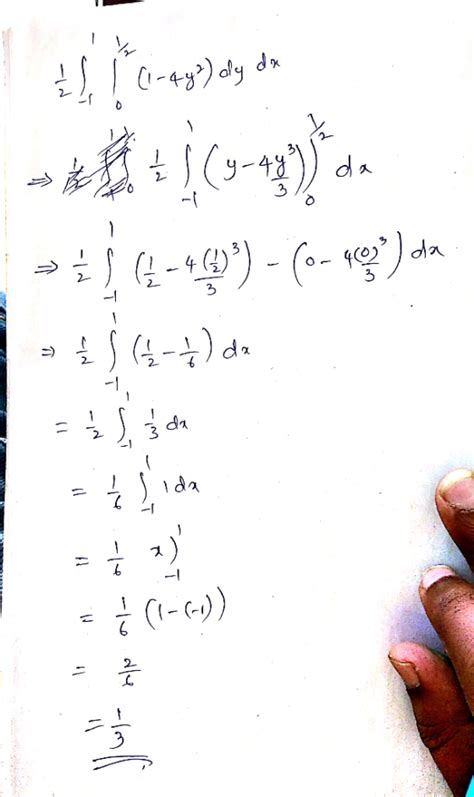 1/2 ∫_{-1}^{1} ∫_{0}^{1/2} (1-4y²) dy dx
⇒ 1/2 ∫_{-1}^{1} (y - 4y³/3))_{0}^{1/2} dx
⇒ 1/2 ∫_{-1}^{1} (1/2 - 4(1/2)³/3) - (0 - 4(0)³/3) dx
⇒ 1/2 ∫_{-1}^{1} (1/2 - 1/6) dx
= 1/2 ∫_{-1}^{1} 1/3 dx
= 1/6 ∫_{-1}^{1} 1 dx
= 1/6 x)_{-1}^{1}
= 1/6 (1-(-1))
= 2/6
= 1/3